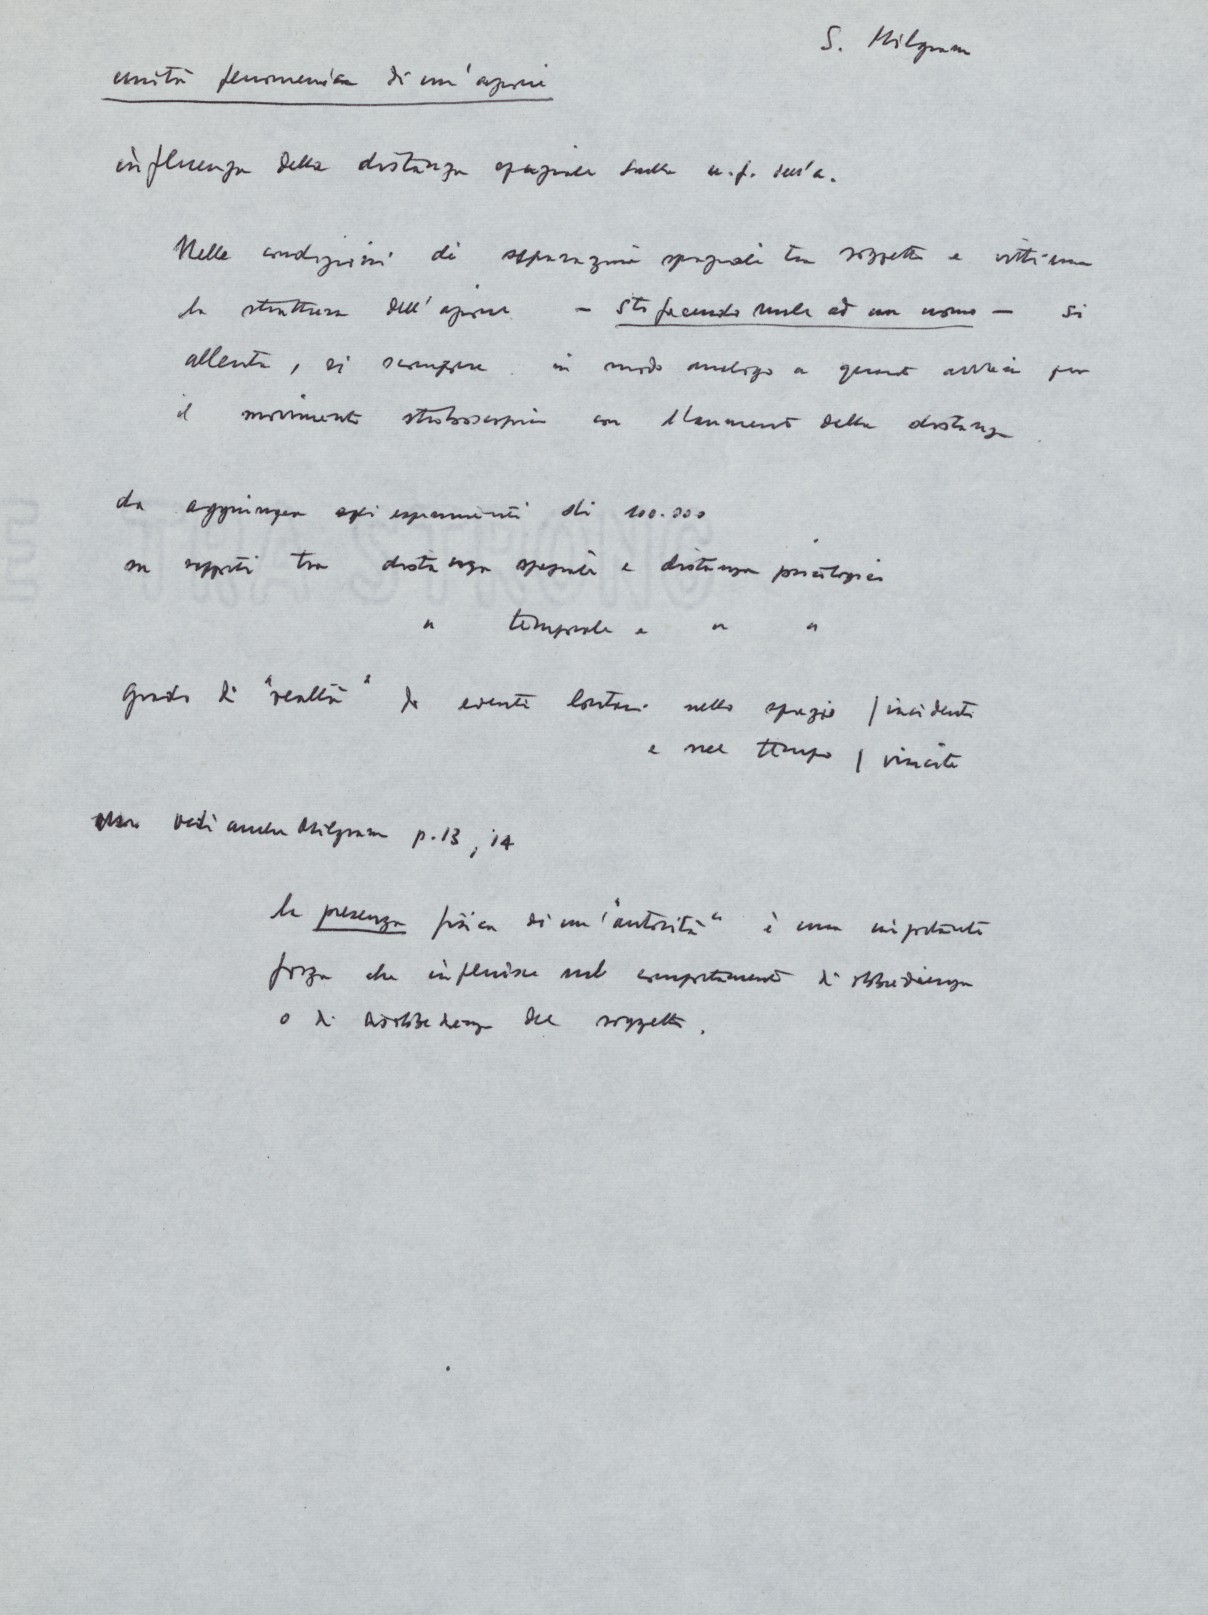 S. Milgram
unità fenomenica di un'azione
influenza della distanza spaziale sulla u.f. dell'a.
Nelle condizioni di separazione spaziale tra soggetto e vittima
la struttura dell'azione – sto facendo male ad un uomo – si
allenta, si scompone in modo analogo a quanto avviene per
il movimento stroboscopico con l'aumento della distanza
da aggiungere agli esperimenti di 100.000
su rapporti tra distanza spaziale e distanza psicologica
" temporale e " "
grado di "realtà" di eventi lontani nello spazio / incidenti
e nel tempo / vincite
vedi anche Milgram p. 13, 14
la presenza fisica di un'"autorità" è una importante
forza che influisce sul comportamento di obbedienza
o di disobbedienza del soggetto.